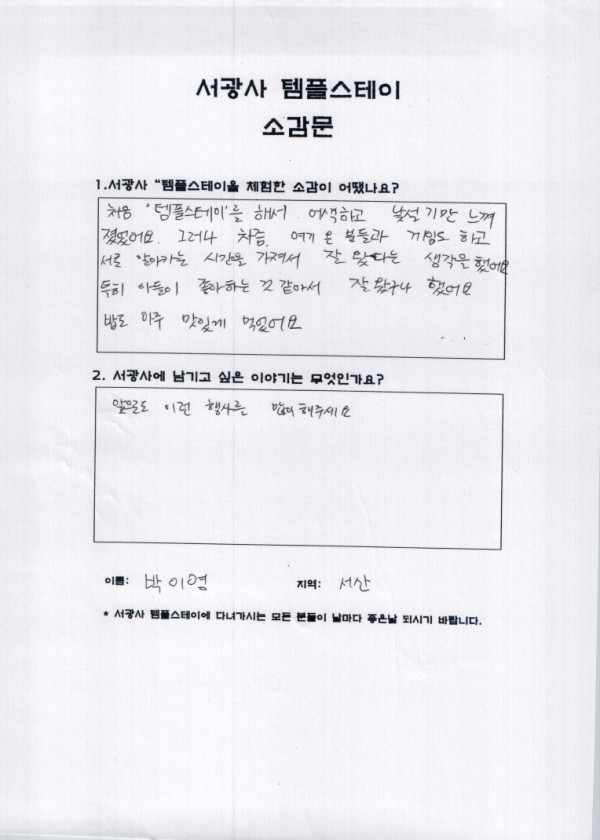 서광사 템플스테이
소감문
1.서광사 "템플스테이을 체험한 소감이 어땠나요?
처음 '템플스테이'를 해서 어색하고 낯설기만 느껴
졌었어요. 그러나 차츰, 여기 온 분들과 게임도 하고
서로 알아가는 시간을 가져서 잘 왔다는 생각을 했어요
특히 아들이 좋아하는 것 같아서 잘 왔구나 했어요
밥도 아주 맛있게 먹었어요
....
2. 서광사에 남기고 싶은 이야기는 무엇인가요?
앞으로도 이런 행사를 많이 해주세요
이름: 박이영 지역: 서산
* 서광사 템플스테이에 다녀가시는 모든 분들이 날마다 좋은날 되시기 바랍니다.